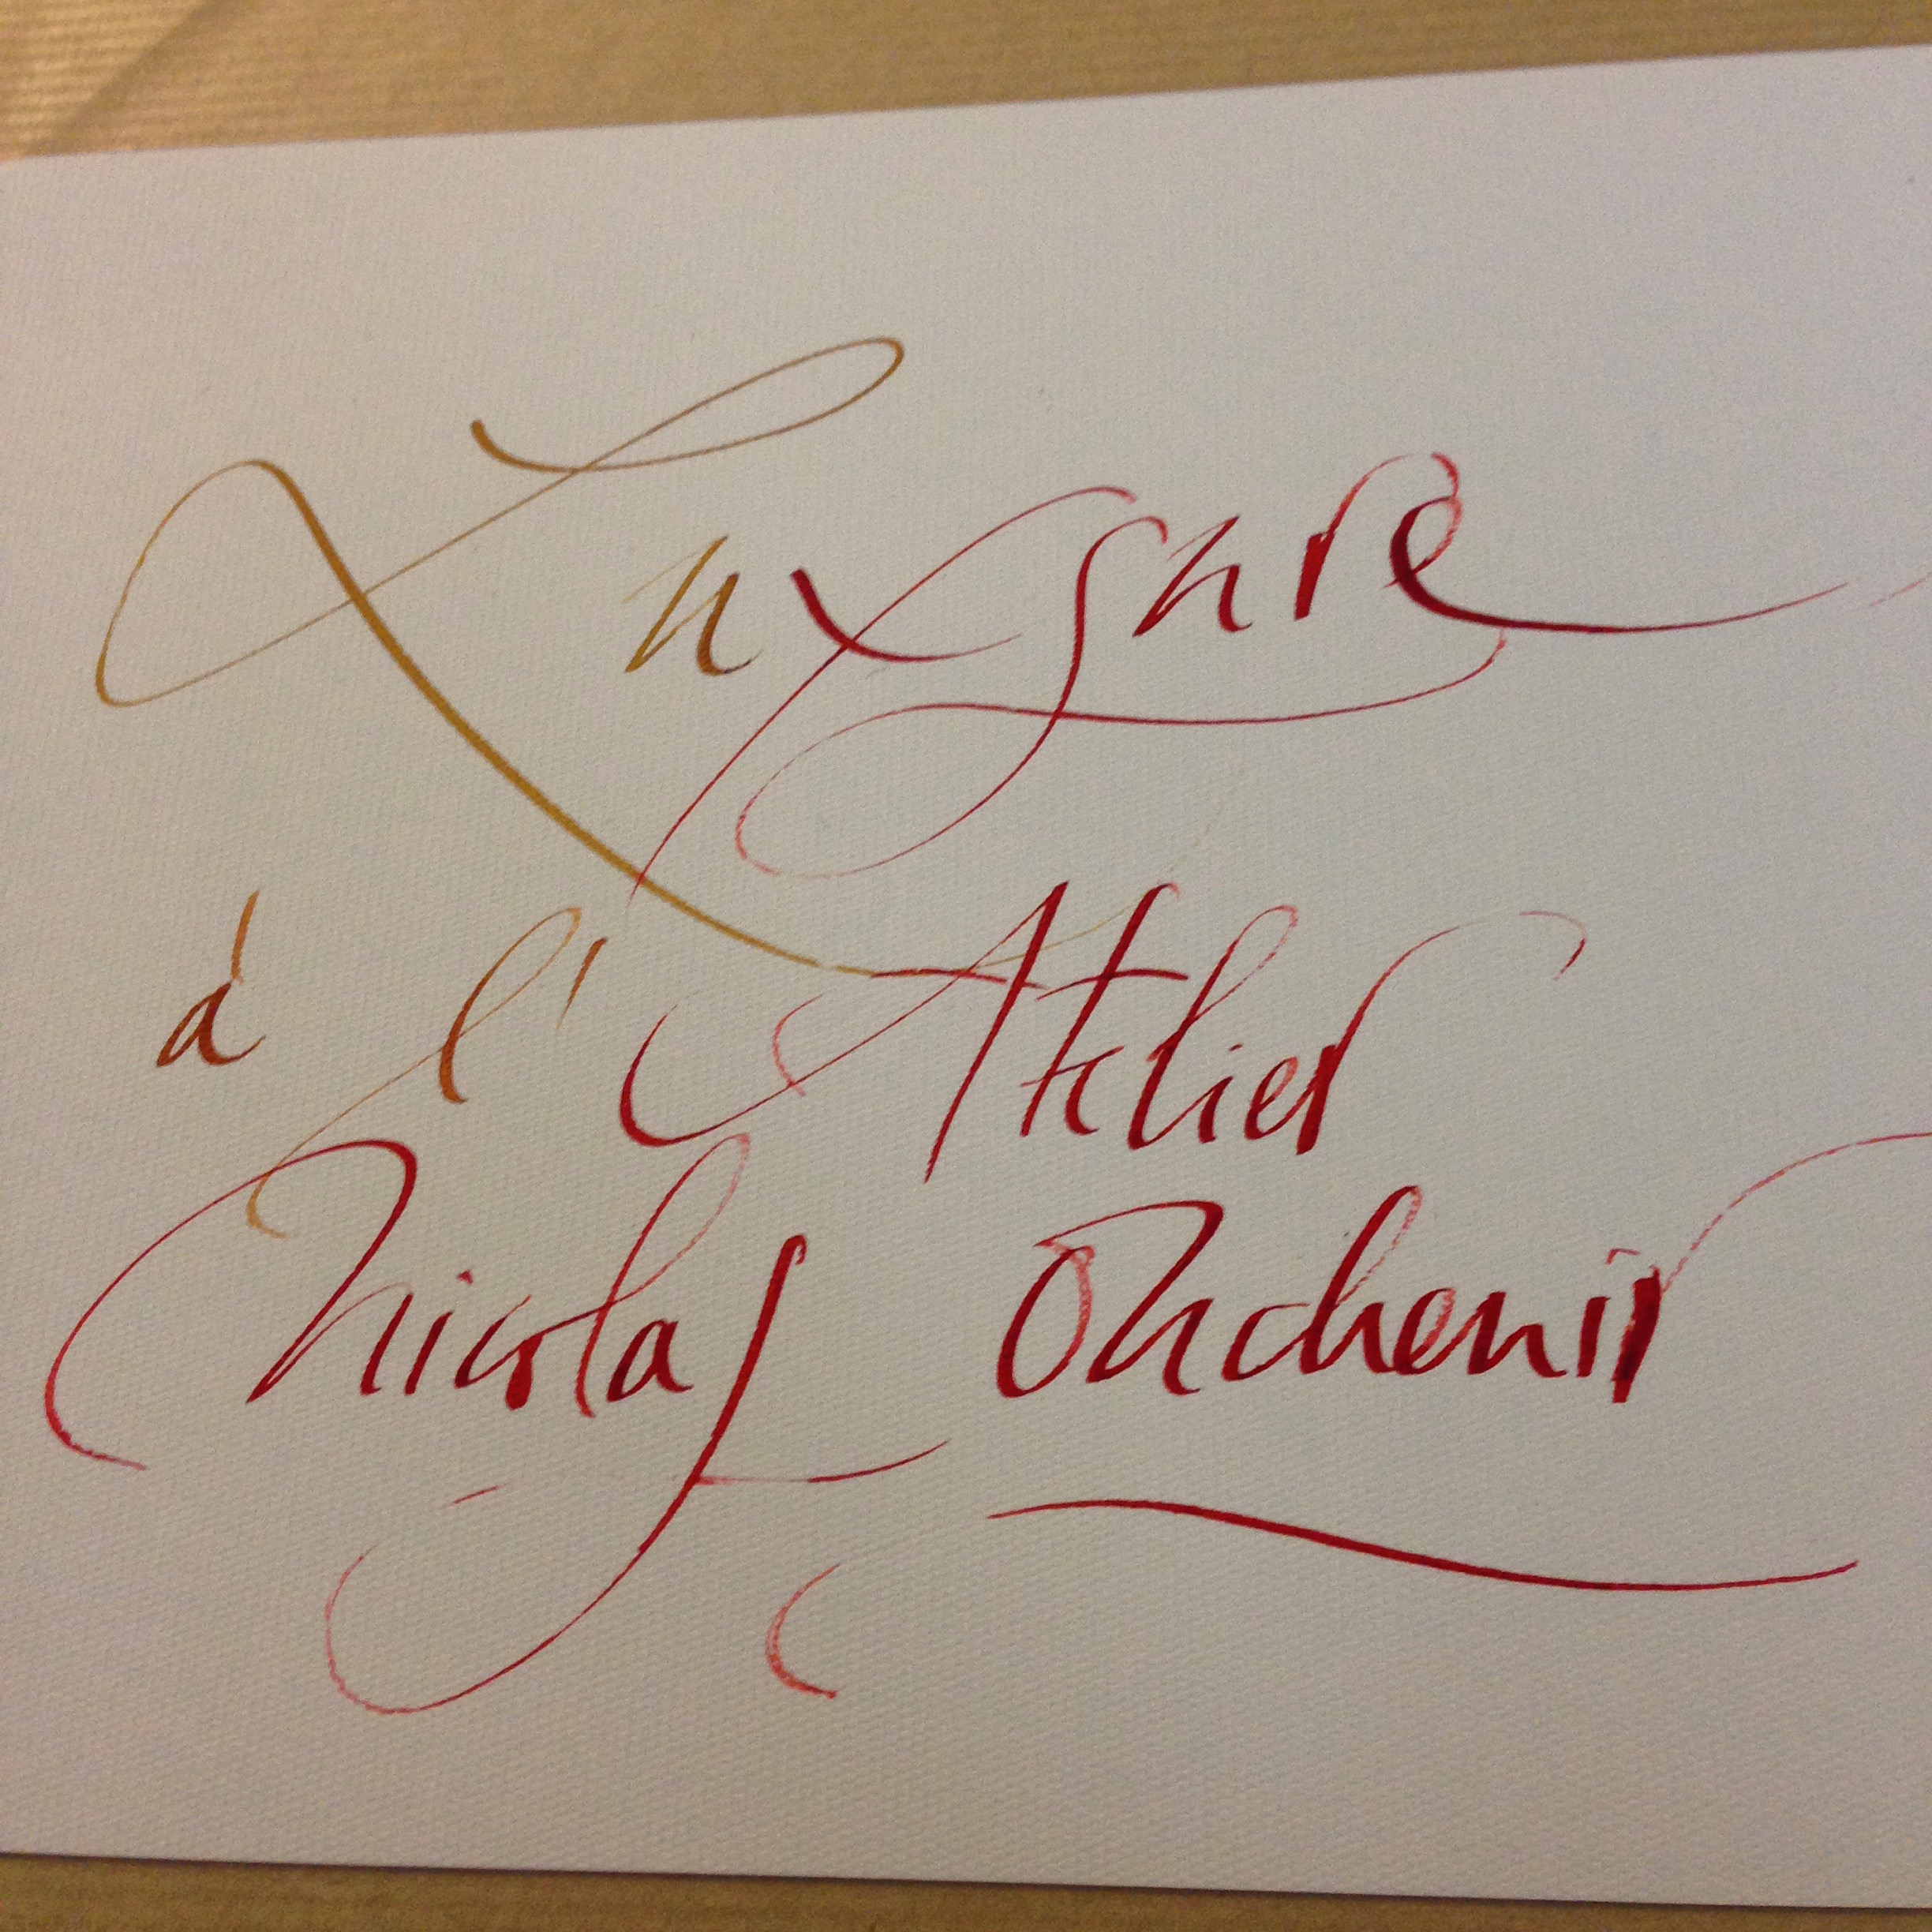 Luxsure
à l'Atelier
Nicolas Ouchenir